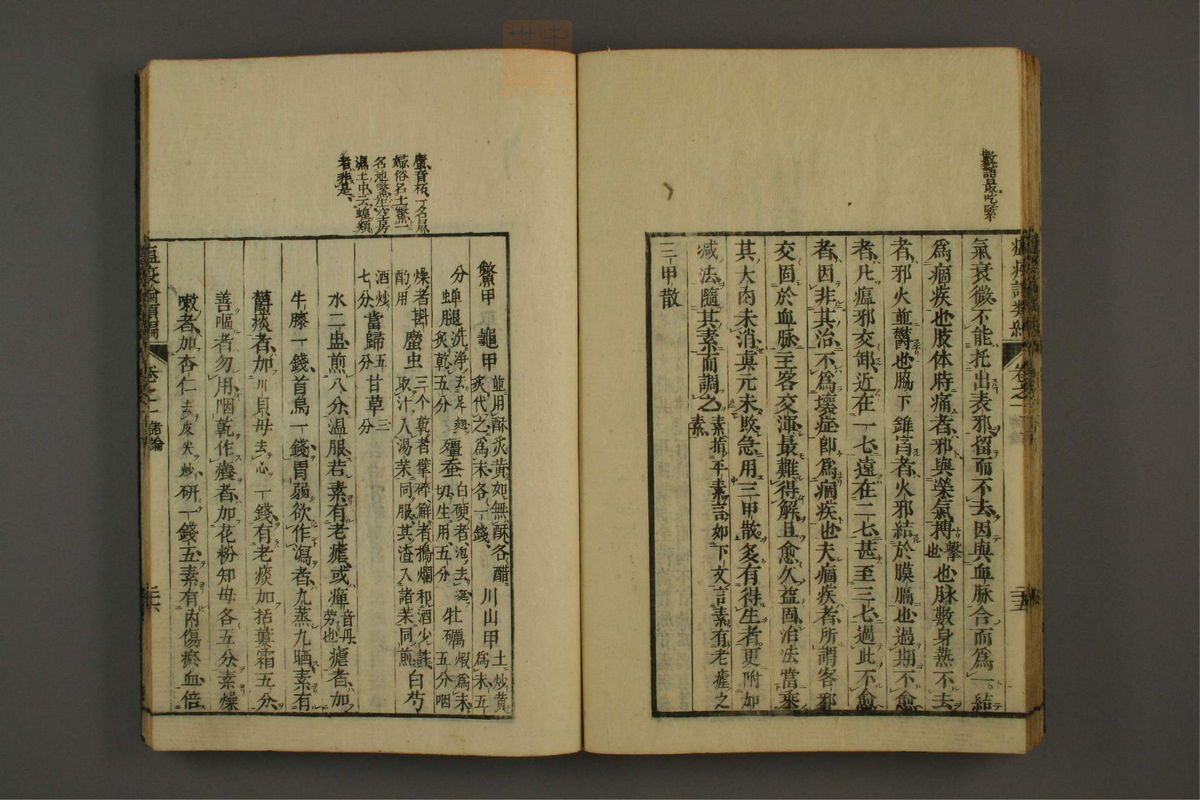 數語最吃緊
氣衰微不能托出表邪留而不去因與血脉合而為一結
為痼疾也肢体時痛者邪與榮氣搏擊也也脉數身熱不去
者邪火並鬱也脇下錐寫者火邪結於膜膈也過期不愈
者凡瘟邪交卸近在一七遠在二七甚至三七過此不愈
者因非其治不為壞症即為痼疾也夫痼疾者所謂客邪
交固於血脉主客交渾最難得解且愈久益固治法當乘
其大肉未消真元未敗急用三甲散多有得生者更附加
減法隨其素而調之素指平素言如下文言素有老瘧之素
三甲散
蟅音柘一名𧊅
婦俗名土鱉一
名地鱉生空房
濕土中云蝗類
者非是
鱉甲 龜甲並用酥炙黃如無酥各醋炙代之為末各一錢 川山甲土炒黃為末五
分 蟬腿洗淨去足翅炙乾五分 殭蚕白硬者泡去涎切生用五分 牡礪煆為末五分咽
燥者斟酌用 䗪虫三个乾者擘碎鮮者搗爛和酒少許取汁入湯茱同服其渣入諸茱同煎 白芍
酒炒七分 當歸五分 甘草三分
水二盅煎八分溫服若素有老瘧或癉音丹勞也瘧者加
牛膝一錢首烏一錢胃弱欲作瀉者九蒸九晒素有
鬱痰者加川貝母去心一錢有老痰加括蔞霜五分
善嘔者勿用咽乾作癢者加花粉知母各五分素燥
嗽者加杏仁去皮尖炒研一錢五素有內傷瘀血倍
溫疫論類編 卷之一 諸論 三十六